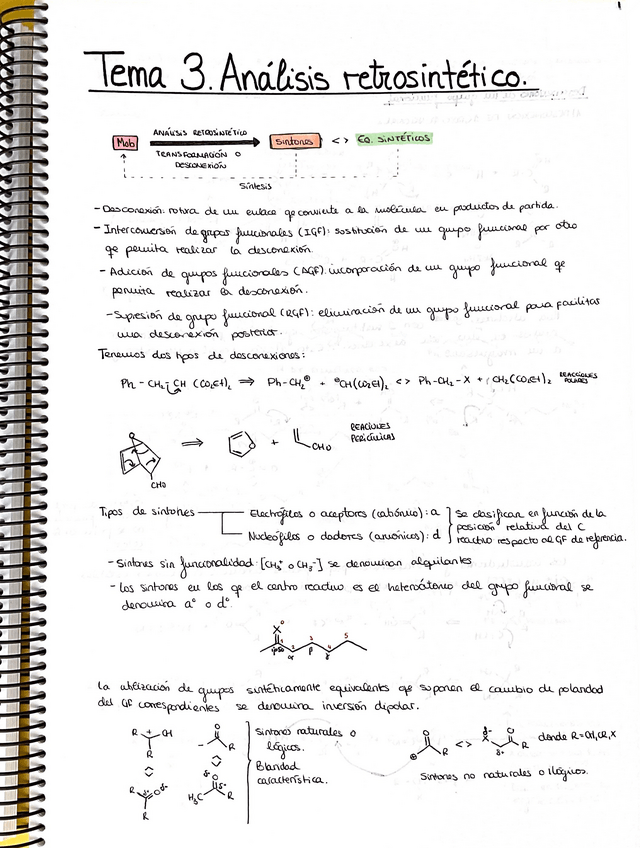 1
Tema 3. Análisis retrosintético.
Mob ANÁLISIS RETROSINTÉTICO TRANSFORMACIÓN O DESCONEXIÓN Sintones <> EQ. SINTÉTICOS
Síntesis
- Desconexión: rotura de un enlace qe convierte a la molécula en productos de partida.
- Interconversión de grupos funcionales (IGF): sustitución de un grupo funcional por otro
qe permita realizar la desconexión.
- Adición de grupos funcionales (AGF): incorporación de un grupo funcional qe
permita realizar la desconexión.
- Supresión de grupo funcional (RGF): eliminación de un grupo funcional para facilitar
una desconexión posterior.
Tenemos dos tipos de desconexiones:
Ph - CH2 - CH (CO2Et)2 ⇒ Ph-CH2⊕ + ⊖CH(CO2Et)2 <> Ph-CH2-X + CH2(CO2Et)2 REACCIONES POLARES
O CHO ⇒ O + CHO REACCIONES PERICÍCLICAS
Tipos de sintones
Electrófilos o aceptores (catiónico): a
Nucleófilos o dadores (aniónicos): d
Se clasifican en función de la
posición relativa del C
reactivo respecto al GF de referencia.
- Sintones sin funcionalidad: [CH3+ o CH3-] se denominan alquilantes
- Los sintones en los qe el centro reactivo es el heteroátomo del grupo funcional se
denomina a° o d°.
X 0
1 2 3 4 5
ipso α β γ
La utilización de grupos sintéticamente equivalentes qe suponen el cambio de polaridad
del GF correspondientes se denomina inversión dipolar.
R + OH R
- O R
R δ+ O δ- R
H3C δ- O δ+ R
Sintones naturales o
lógicos.
Polaridad
característica.
O ⊕ R <> δ- X δ+ O R donde R=OH, OR, X
Sintones no naturales o ilógicos.